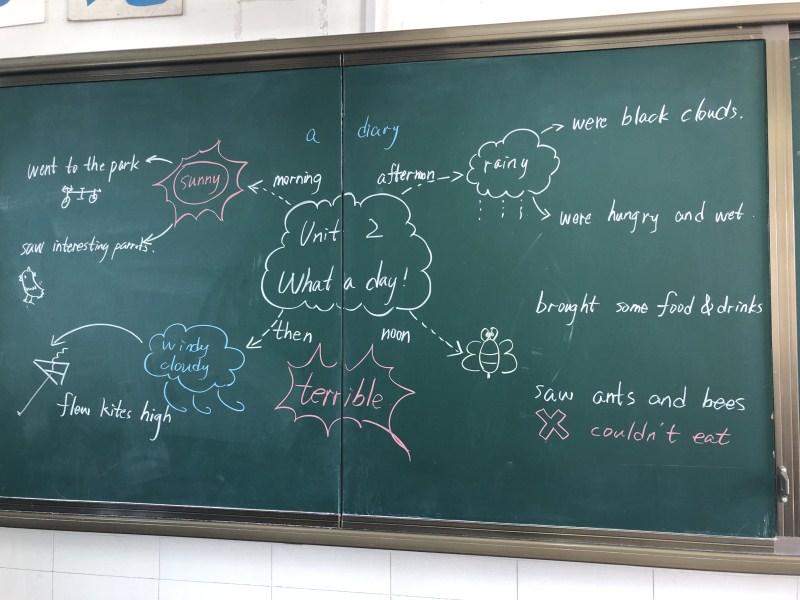 a diary
went to the park
sunny
morning
saw interesting parrots.
Unit 2
What a day!
afternoon
rainy
were black clouds.
were hungry and wet.
then
windy
cloudy
flew kites high
terrible
noon
brought some food & drinks
saw ants and bees
couldn't eat